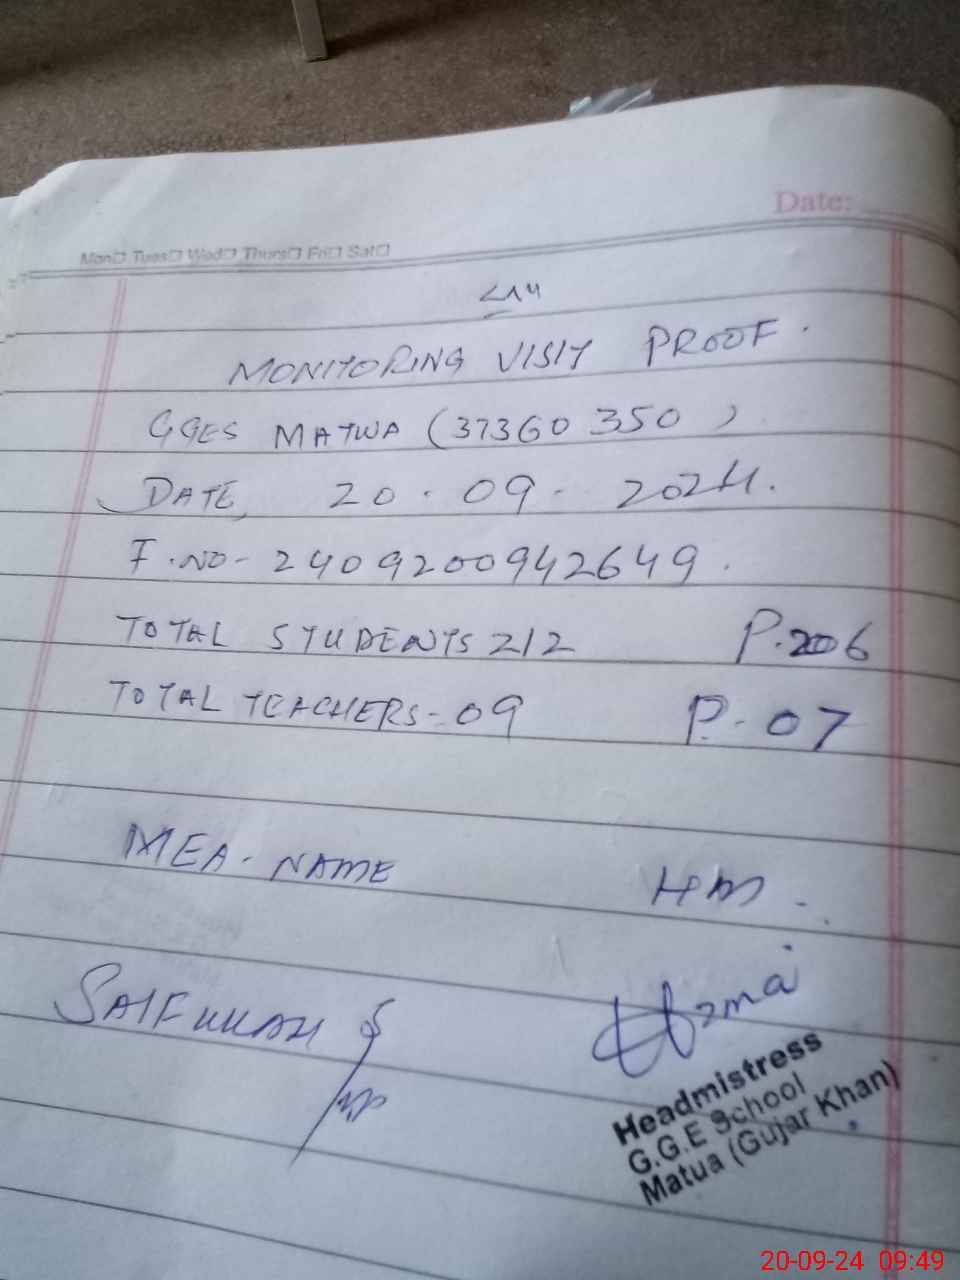 Date:
Mon Tues Wed Thurs Fri Sat
MONITORING VISIT PROOF.
GGES MATWA (37360350)
DATE, 20.09.2024.
F.NO- 2409200942649.
TOTAL STUDENTS 212 P.206
TOTAL TEACHERS-09 P.07
MEA-NAME HM.
SAIFULLAH Uzma
Headmistress
G.G.E School
Matua (Gujar Khan)
20-09-24 09:49